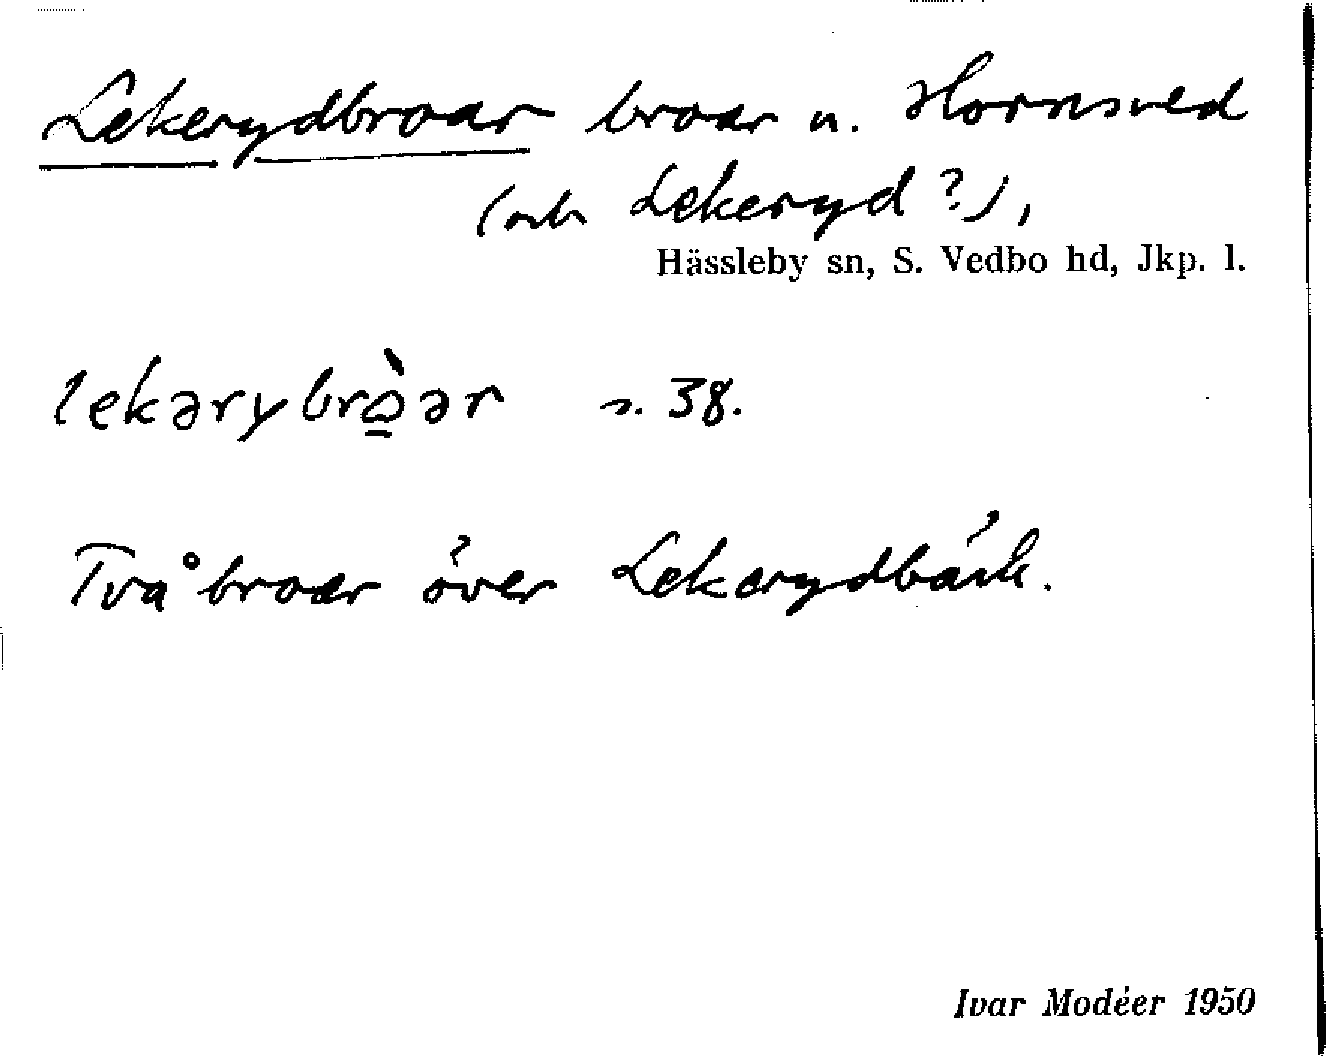 Lekerydbroar broar u. Hornsved
(och Lekeryd?),
Hässleby sn, S. Vedbo hd, Jkp. l.
lekərybrò̱ər s. 38.
Två broar över Lekerydbäck.
Ivar Modéer 1950